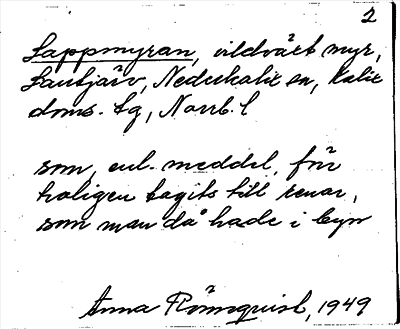 2
Lappmyran, vildväxt myr,
Lantjärv, Nederkalix sn, Kalix
doms. tg, Norrb. l
som, enl. meddel, för
troligen tagits till renar,
som man då hade i byn
Anna Rönnqvist, 1949